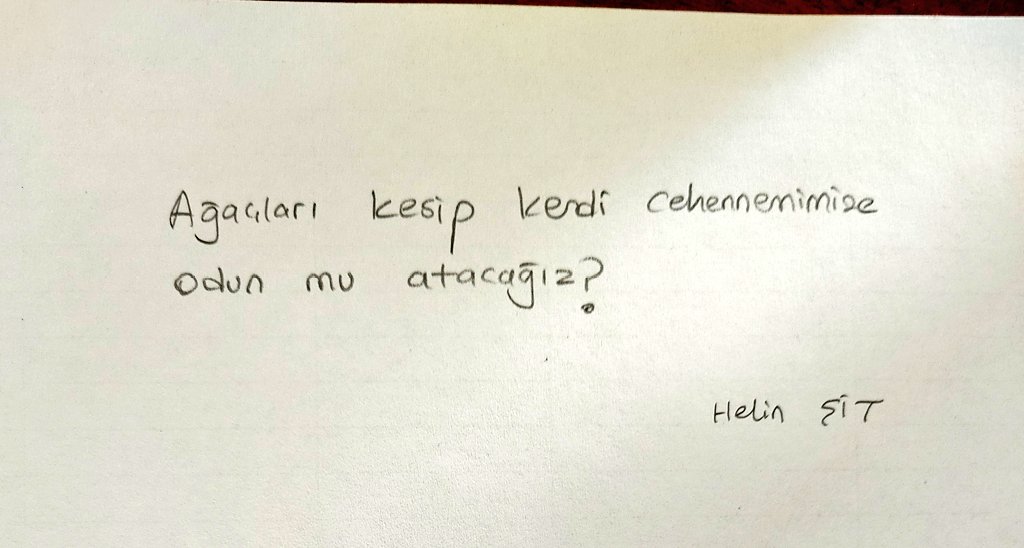 Ağaçları kesip kendi cehennemimize
odun mu atacağız?
Helin ŞİT